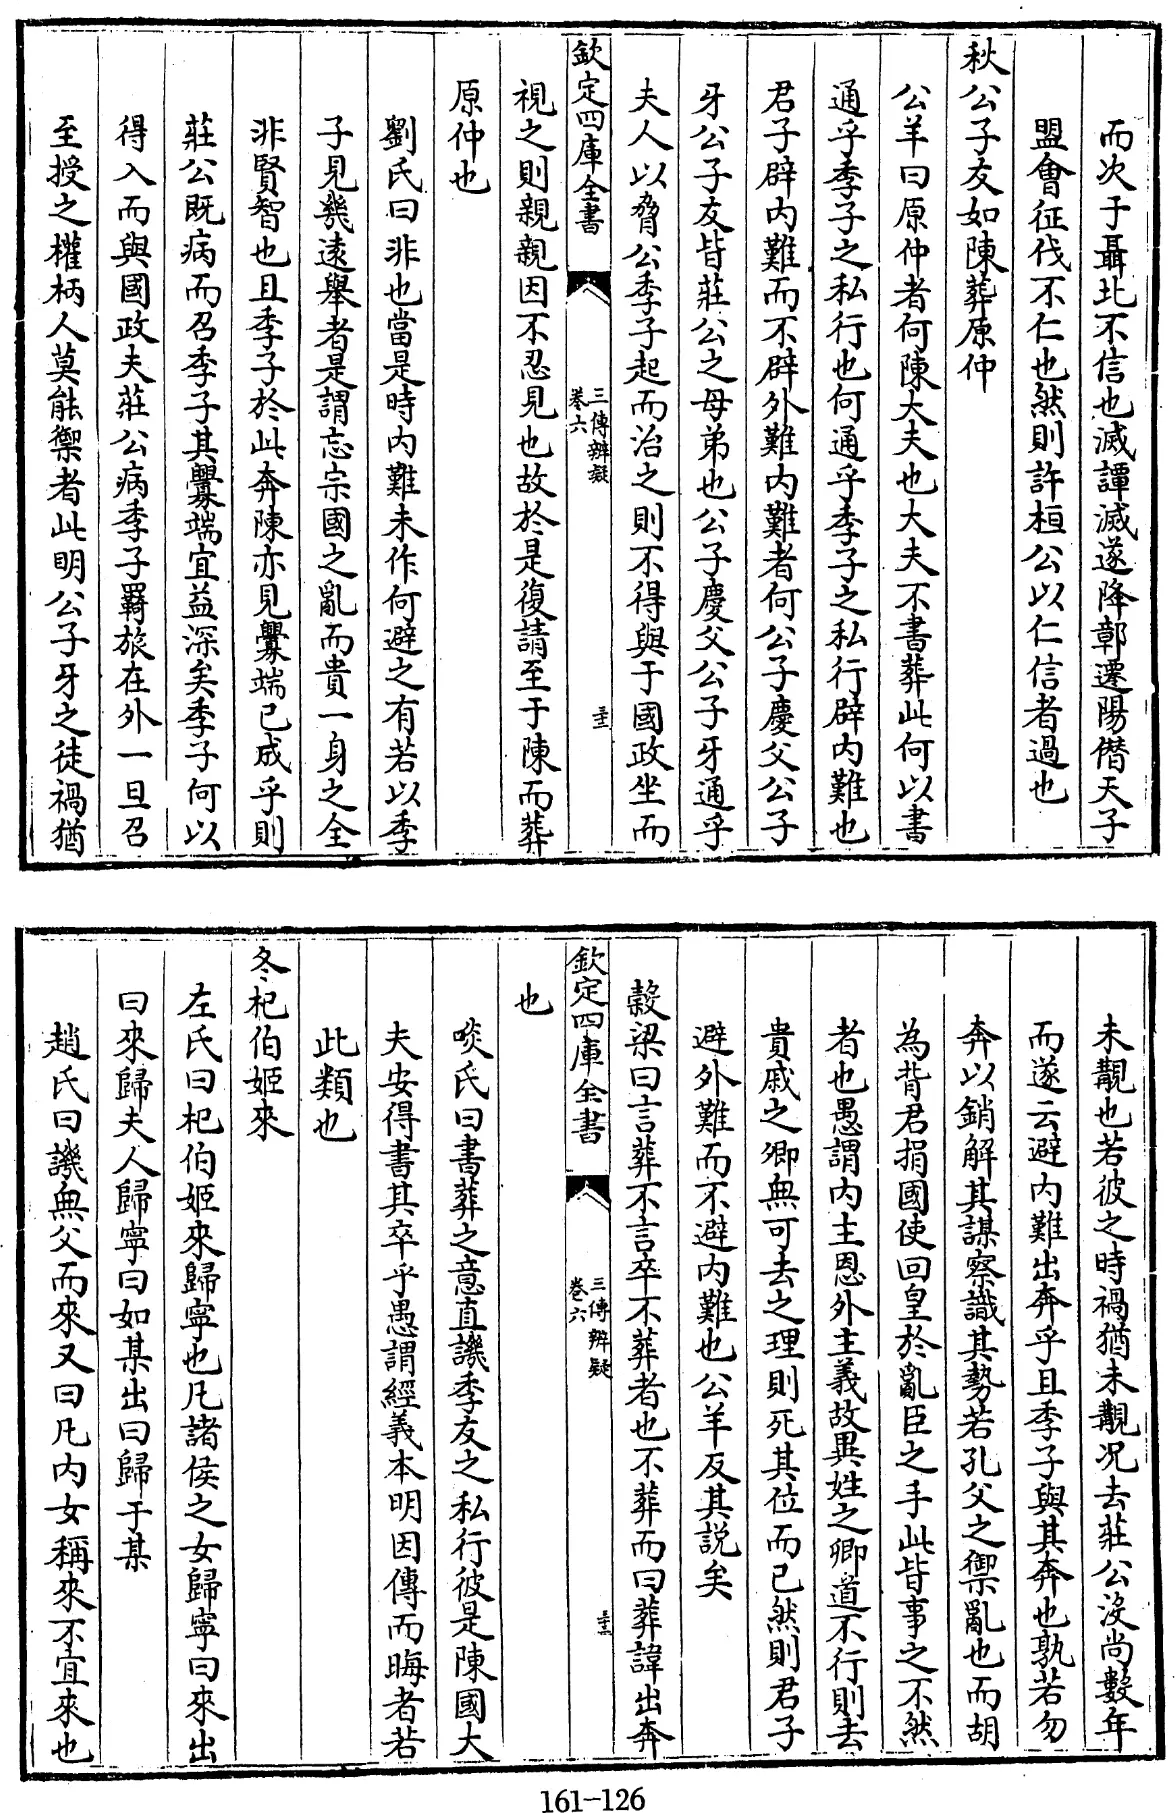 而次于聶北不信也滅譚滅遂降鄣遷陽僭天子
盟會征伐不仁也然則許桓公以仁信者過也
秋公子友如陳葬原仲
公羊曰原仲者何陳大夫也大夫不書葬此何以書
通乎季子之私行也何通乎季子之私行辟内難也
君子辟内難而不辟外難内難者何公子慶父公子
牙公子友皆莊公之母弟也公子慶父公子牙通乎
夫人以脅公季子起而治之則不得與于國政坐而
欽定四庫全書
三傳辨疑
卷六
三十二
視之則親親因不忍見也故於是復請至于陳而葬
原仲也
劉氏曰非也當是時内難未作何避之有若以季
子見幾逺舉者是謂忘宗國之亂而貴一身之全
非賢智也且季子於此奔陳亦見釁端已成乎則
莊公既病而召季子其釁端宜益深矣季子何以
得入而與國政夫莊公病季子羇旅在外一旦召
至授之權柄人莫能禦者此明公子牙之徒禍猶
未覩也若彼之時禍猶未覩況去莊公沒尚數年
而遂云避内難出奔乎且季子與其奔也孰若勿
奔以銷解其謀察識其勢若孔父之禦亂也而胡
為背君捐國使回皇於亂臣之手此皆事之不然
者也愚謂内主恩外主義故異姓之卿道不行則去
貴戚之卿無可去之理則死其位而已然則君子
避外難而不避内難也公羊反其説矣
榖梁曰言葬不言卒不葬者也不葬而曰葬諱出奔
欽定四庫全書
三傳辨疑
卷六
三十三
也
啖氏曰書葬之意直譏季友之私行彼是陳國大
夫安得書其卒乎愚謂經義本明因傳而晦者若
此類也
冬杞伯姬來
左氏曰杞伯姬來歸寧也凡諸侯之女歸寧曰來出
曰來歸夫人歸寧曰如某出曰歸于某
趙氏曰譏無父而來又曰凡内女稱來不宜來也
161-126